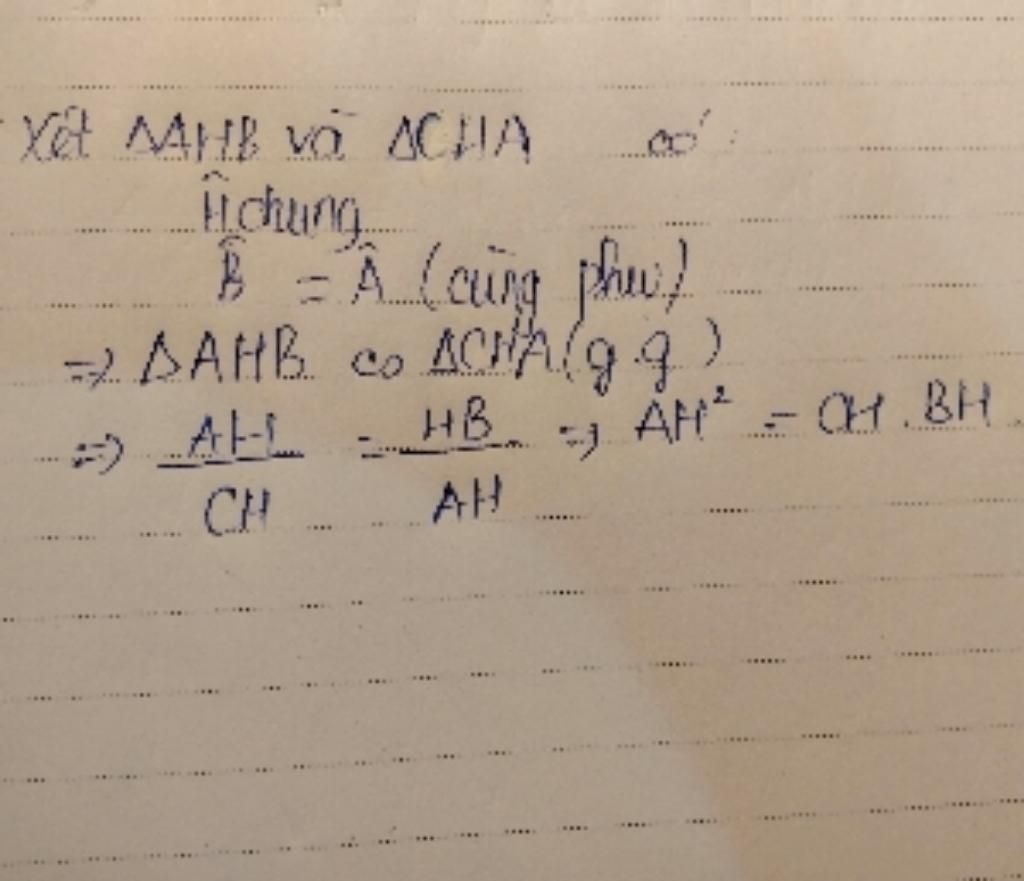 Xét ΔAHB và ΔCHA có:
Ĥ chung
B̂ = Â (cùng phụ)
=> ΔAHB ∽ ΔCHA (g.g)
=> AH/CH = HB/AH => AH² = CH . BH.